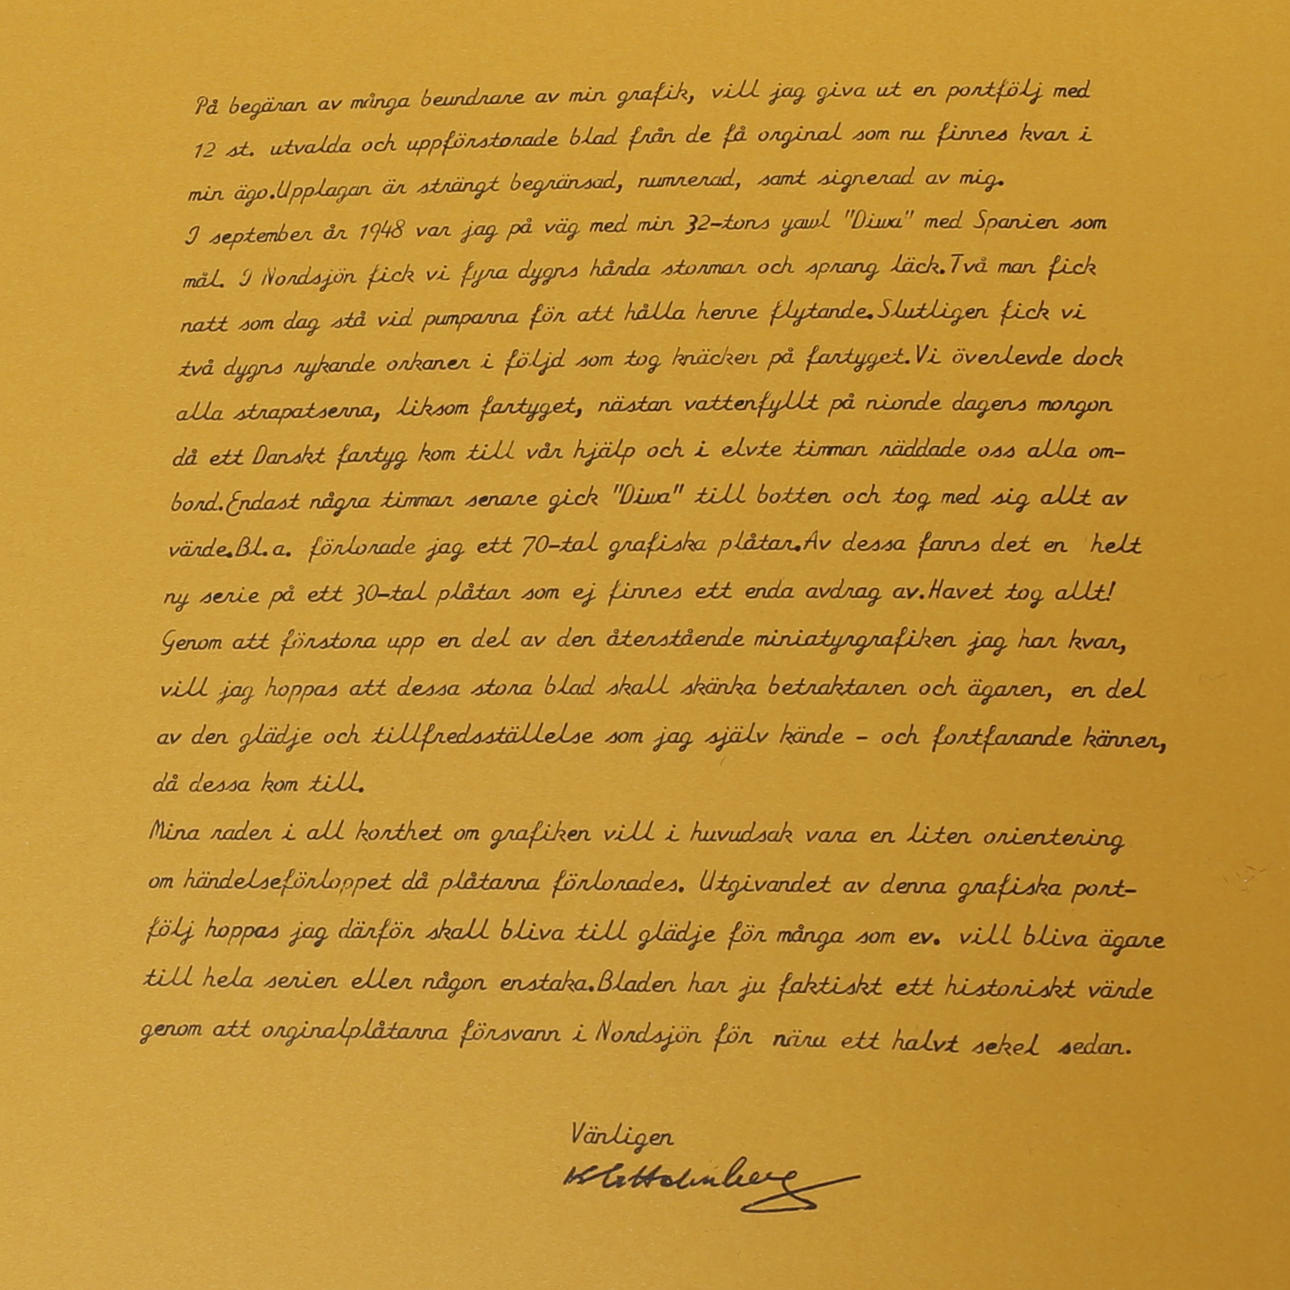 På begäran av många beundrare av min grafik, vill jag giva ut en portfölj med
12 st. utvalda och uppförstorade blad från de få orginal som nu finnes kvar i
min ägo.Upplagan är strängt begränsad, numrerad, samt signerad av mig.
I september år 1948 var jag på väg med min 32-tons yawl "Diwa" med Spanien som
mål. I Nordsjön fick vi fyra dygns hårda stormar och sprang läck.Två man fick
natt som dag stå vid pumparna för att hålla henne flytande.Slutligen fick vi
två dygns rykande orkaner i följd som tog knäcken på fartyget.Vi överlevde dock
alla strapatserna, liksom fartyget, nästan vattenfyllt på nionde dagens morgon
då ett Danskt fartyg kom till vår hjälp och i elvte timman räddade oss alla om-
bord.Endast några timmar senare gick "Diwa" till botten och tog med sig allt av
värde.Bl.a. förlorade jag ett 70-tal grafiska plåtar.Av dessa fanns det en helt
ny serie på ett 30-tal plåtar som ej finnes ett enda avdrag av.Havet tog allt!
Genom att förstora upp en del av den återstående miniatyrgrafiken jag har kvar,
vill jag hoppas att dessa stora blad skall skänka betraktaren och ägaren, en del
av den glädje och tillfredsställelse som jag själv kände - och fortfarande känner,
då dessa kom till.
Mina rader i all korthet om grafiken vill i huvudsak vara en liten orientering
om händelseförloppet då plåtarna förlorades. Utgivandet av denna grafiska port-
följ hoppas jag därför skall bliva till glädje för många som ev. vill bliva ägare
till hela serien eller någon enstaka.Bladen har ju faktiskt ett historiskt värde
genom att orginalplåtarna försvann i Nordsjön för nära ett halvt sekel sedan.
Vänligen